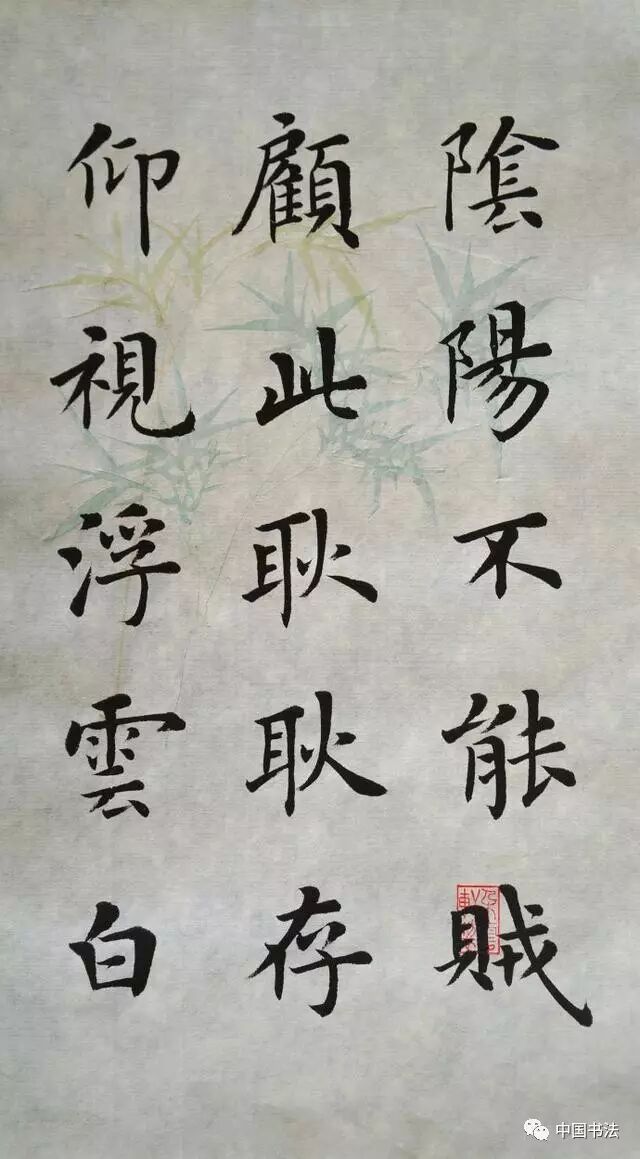 陰陽不能賊
顧此耿耿存
仰視浮雲白
中国书法